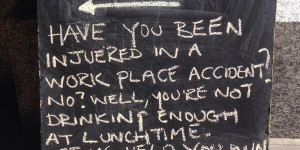 HAVE YOU BEEN
INJUERED IN A
WORK PLACE ACCIDENT?
NO? WELL, YOU'RE NOT
DRINKING ENOUGH
AT LUNCHTIME.
HELP YOU